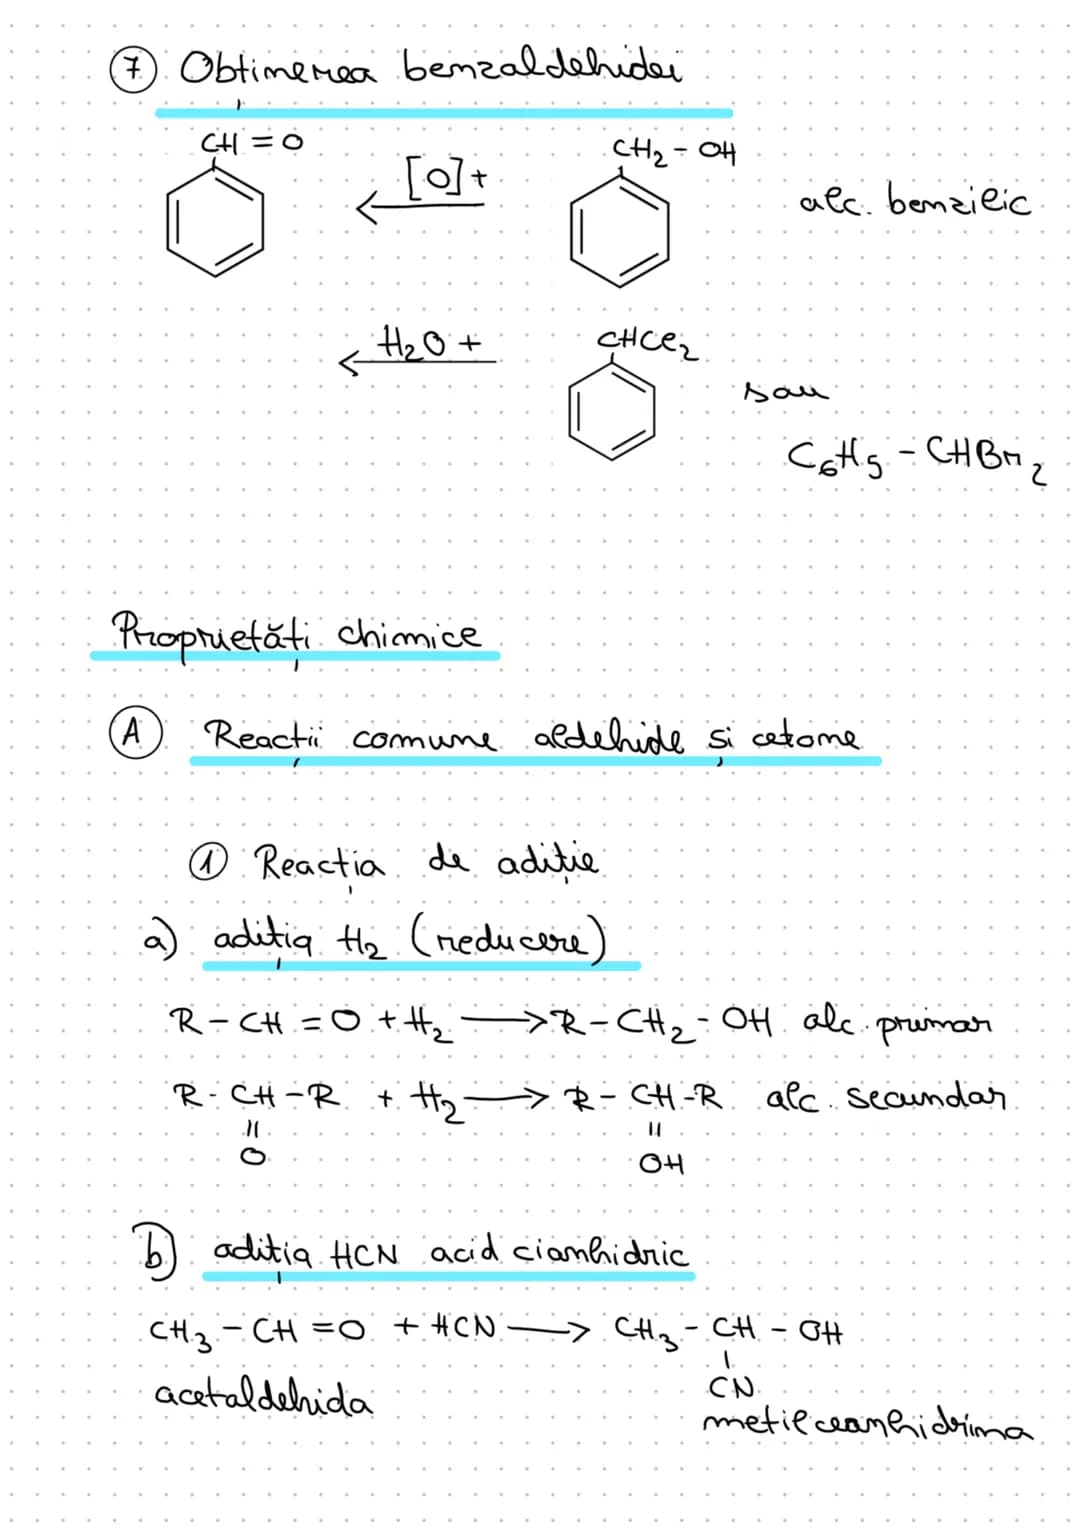 7 Obținerea benzaldehidei
CH = O
[O]+
CH₂ - OH
alc. benzilic
H₂O +
CHCl₂
sau
C₆H₅ - CHBr₂
Proprietăți chimice
A Reacții comune aldehide și cetone
1 Reacția de adiție
a) adiția H₂ (reducere)
R - CH = O + H₂ → R - CH₂ - OH alc. primar
R - CH - R + H₂ → R - CH - R alc. secundar
|| ||
O OH
b) adiția HCN acid cianhidric
CH₃ - CH = O + HCN → CH₃ - CH - OH
|
acetaldehida CN
metilceanhidrina